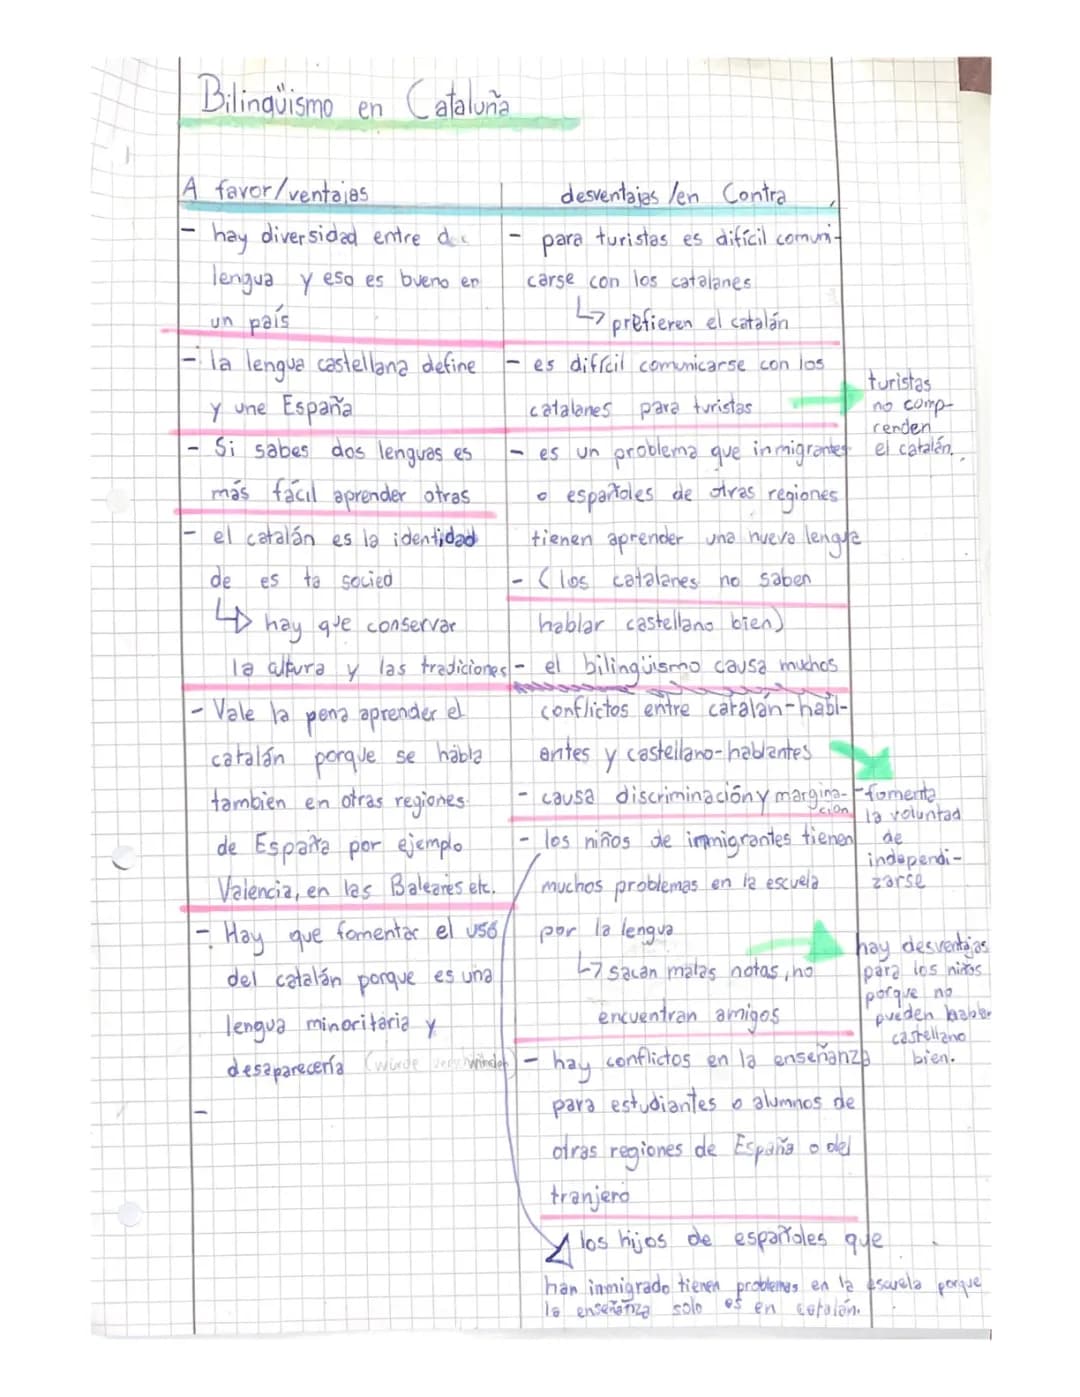 Bilingüismo en Cataluña
A favor/ventajas
- hay diversidad entre
lengua y eso es bueno en
un país
- la lengua castellana define
y une España
- Si sabes dos lenguas es
más fácil aprender otras
- el catalán es la identidad
de es ta socied
↳ hay que conservar
la altura y las tradiciones
- Vale la pena aprender el
catalán porque se habla
tambien en otras regiones
de España por ejemplo
Valencia, en las Baleares etc.
- Hay que fomentar el uso
del catalán porque es una
lengua minoritaria y
desaparecería (würde verschwinden)
-
desventajas /en Contra
- para turistas es difícil comuni-
carse con los catalanes
↳ prefieren el catalán
- es difícil comunicarse con los
catalanes para turistas
- es un problema que inmigrantes
o españoles de otras regiones
tienen aprender una nueva lengua
- (los catalanes no saben
hablar castellano bien)
- el bilingüismo causa muchos
conflictos entre catalán-habl-
antes y castellano-hablantes
- causa discriminación y margina-
ción
- los niños de inmigrantes tienen
muchos problemas en la escuela
por la lengua
↳ sacan malas notas, no
encuentran amigos
- hay conflictos en la enseñanza
para estudiantes o alumnos de
otras regiones de España o del
tranjero
los hijos de españoles que
han inmigrado tienen problemas en la escuela porque
la enseñanza solo es en catalán.
turistas
no comp-
renden
el catalán.
- fomenta
la voluntad
de
independi-
zarse
hay desventajas
para los niños
porque no
pueden hablar
castellano
bien.